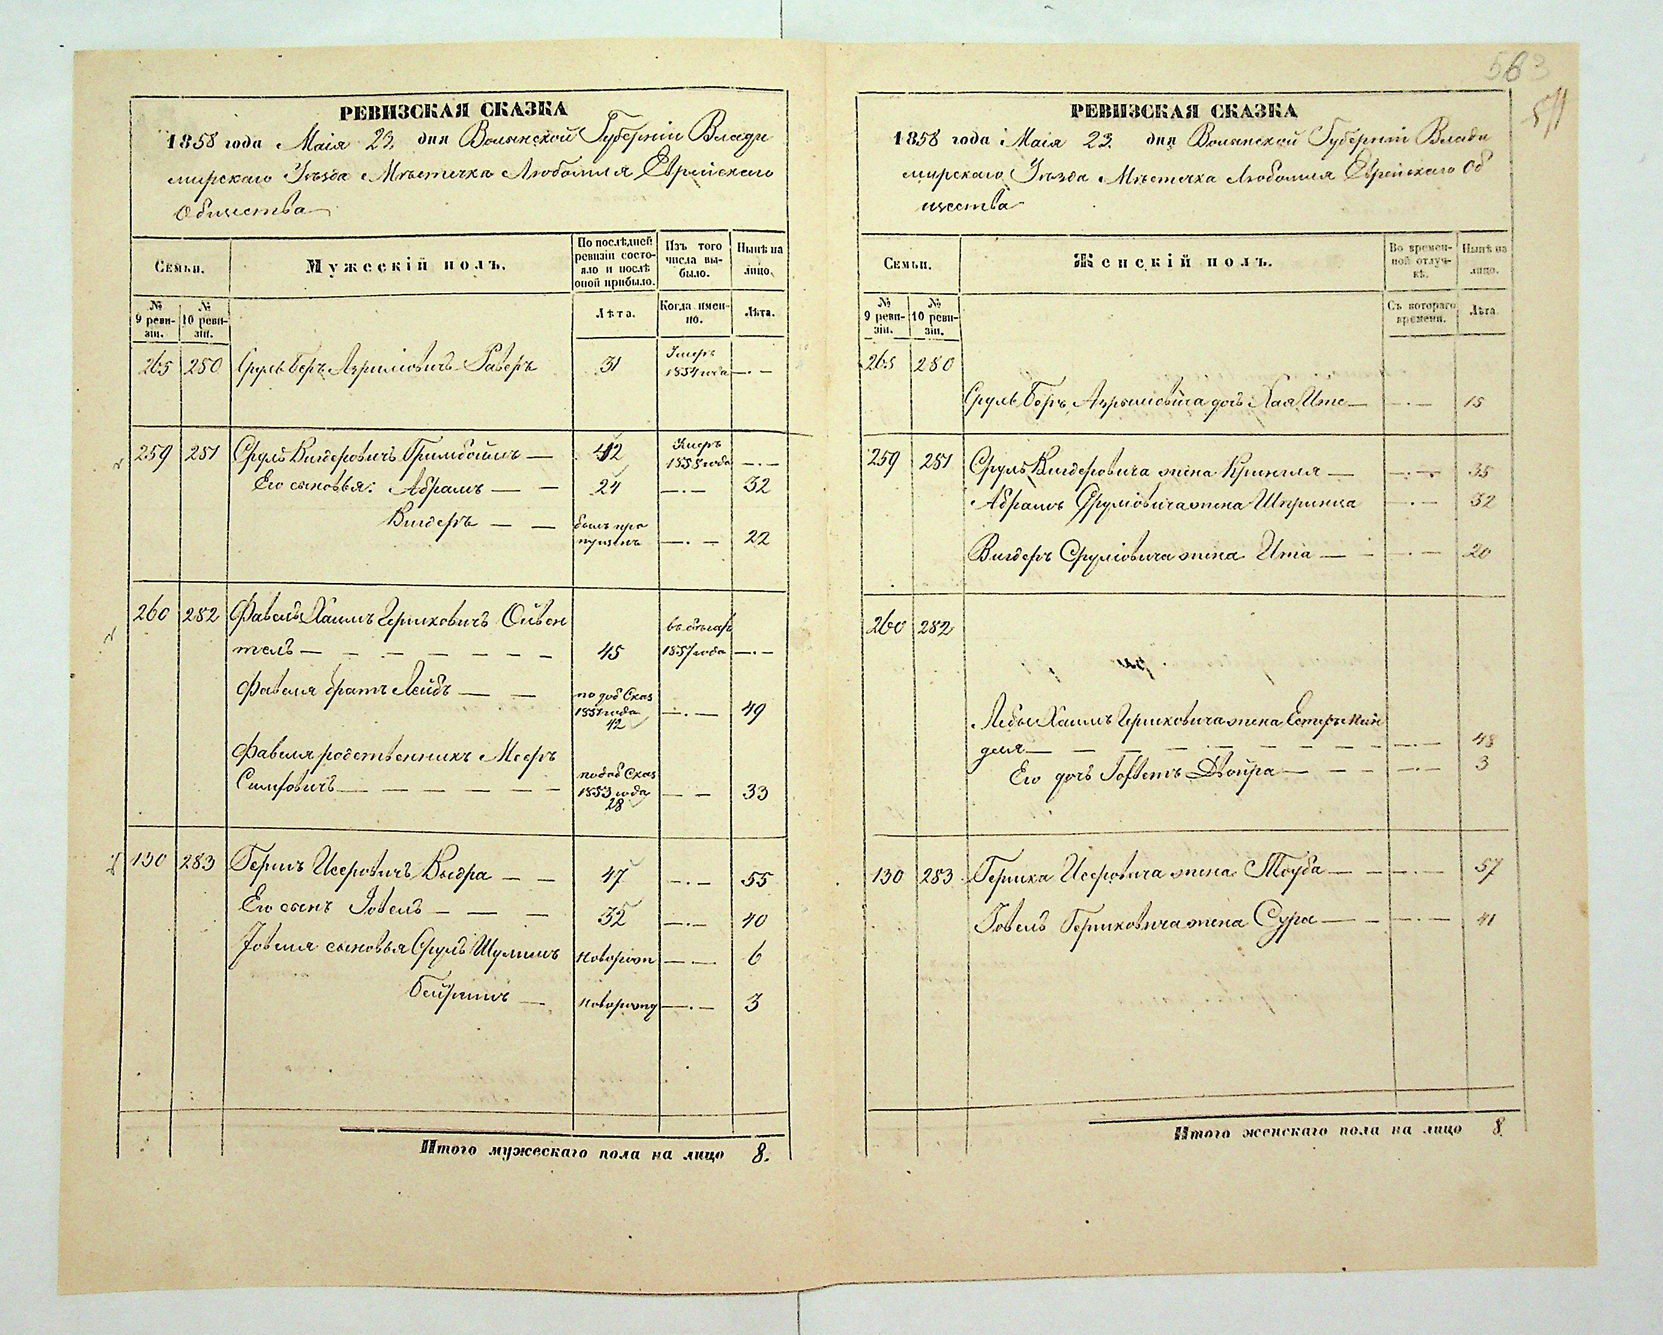 563
511
РЕВИЗСКАЯ СКАЗКА
1858 года Маія 23. дня Волынской Губерніи Влади
мирскаго Уѣзда Мѣстечка Любомля Еврейскаго
Общества
Семьи.
Мужескій полъ.
По послѣдней ревизіи состояло и послѣ оной прибыло.
Изъ того числа выбыло.
Нынѣ на лицо.
№ 9 ревизіи.
№ 10 ревизіи.
Лѣта.
Когда именно.
Лѣта.
265 280 Сруль Беръ Аврумовичъ 31 Умеръ 1854 года —·—
259 281 Сруль Вигдеровичъ 42 Умеръ 1855 года —·—
Его сыновья: Абрамъ — — 24 —·— 32
Вигдеръ — — былъ про
пущенъ —·— 22
260 282 Фавель Хаимъ Гершковичъ
тель — — — — — — — 45 въ бѣгах 1857 года —·—
Фавеля братъ Лейбъ — — по доб Сказ
1851 года
42 —·— 49
Фавеля родственникъ Мееръ
— — — — — — по доб Сказ
1853 года
28 — — 33
130 283 Гершъ Исеровичъ Выдра — — 47 —·— 55
Его сынъ Іовель — — — 32 —·— 40
Іовеля сыновья Сруль Шулимъ новорож — — 6
Бейришъ — новорожд —·— 3
Итого мужескаго пола на лицо 8.
РЕВИЗСКАЯ СКАЗКА
1858 года Маія 23. дня Волынской Губерніи Влади
мирскаго Уѣзда Мѣстечка Любомля Еврейскаго Об
щества
Семьи.
Женскій полъ.
Во временной отлучкѣ.
Нынѣ на лицо.
№ 9 ревизіи.
№ 10 ревизіи.
Съ котораго времени.
Лѣта.
265 280
Сруль Беръ Аврумовича дочь Хая Ите — —·— 15
259 281 Сруль Вигдеровича жена — —·— 35
Абрамъ Срулiовича жена Шпринца —·— 32
Вигдеръ Срулiовича жена Ита — —·— 20
260 282
Лейбы Хаимъ Гершковича жена Естеръ
— — — — — — — — —·— 48
Его дочь Двойра — — —·— 3
130 283 Гершка Исеровича жена Тоуба — — —·— 57
Іовель Гершковича жена Сура — — —·— 41
Итого женскаго пола на лицо 8